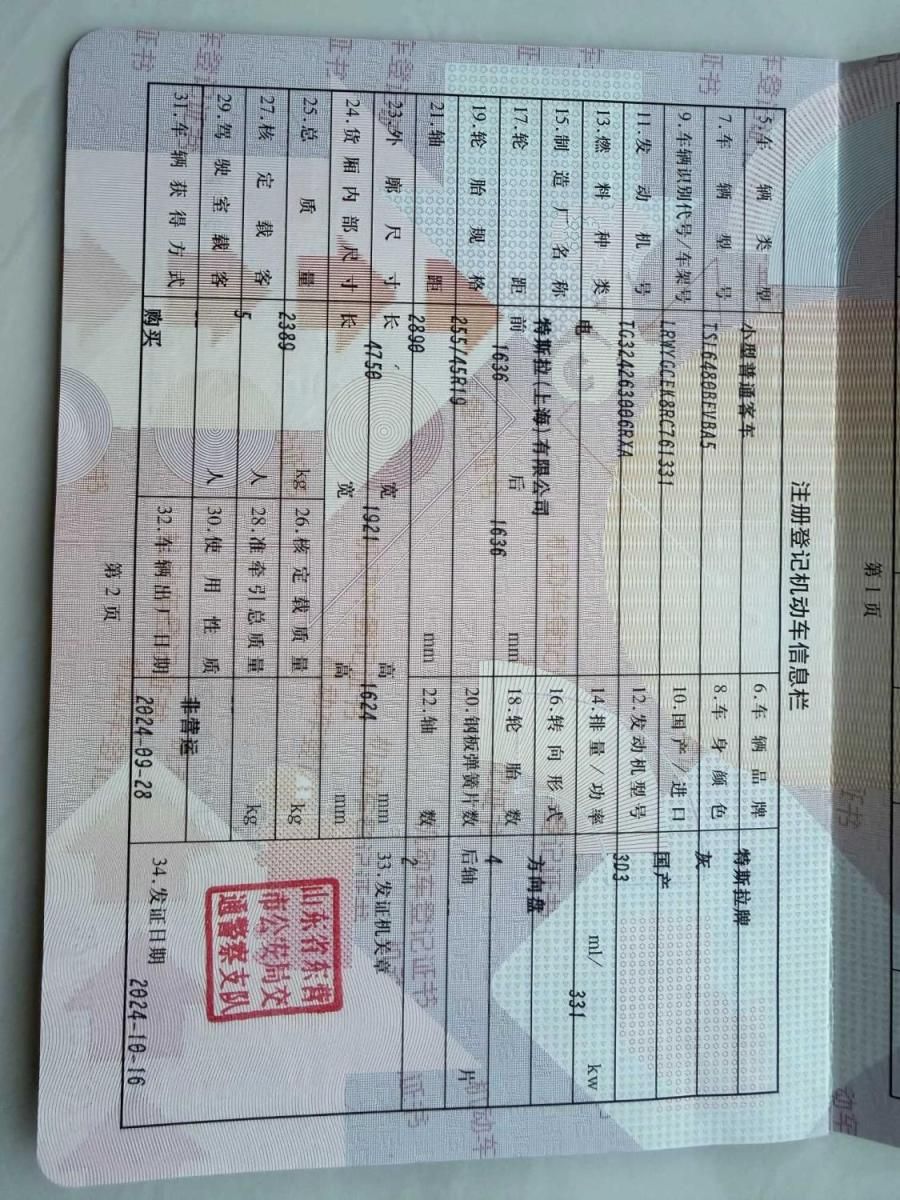 第1页
注册登记机动车信息栏
5.车辆类型 小型普通客车 6.车辆品牌 特斯拉牌
7.车辆型号 TSL6480BEVBA5 8.车身颜色 灰
9.车辆识别代号/车架号 LRWYGCEK8RC761331 10.国产/进口 国产
11.发动机号 TG324263006RXA 12.发动机型号 3D3
13.燃料种类 电 14.排量/功率 ml/ 331 kw
15.制造厂名称 特斯拉(上海)有限公司 16.转向形式 方向盘
17.轮距 前 1636 后 1636 mm 18.轮胎数 4
19.轮胎规格 255/45R19 20.钢板弹簧片数 后轴 片
21.轴距 2890 mm 22.轴数 2
23.外廓尺寸 长 4750 宽 1921 高 1624 mm 33.发证机关章
24.货厢内部尺寸 长 宽 高 mm
25.总质量 2389 kg 26.核定载质量 kg
27.核定载客 5 人 28.准牵引总质量 kg
29.驾驶室载客 -- 人 30.使用性质 非营运
31.车辆获得方式 购买 32.车辆出厂日期 2024-09-28 34.发证日期 2024-10-16
山东省东营
市公安局交
通警察支队
第2页